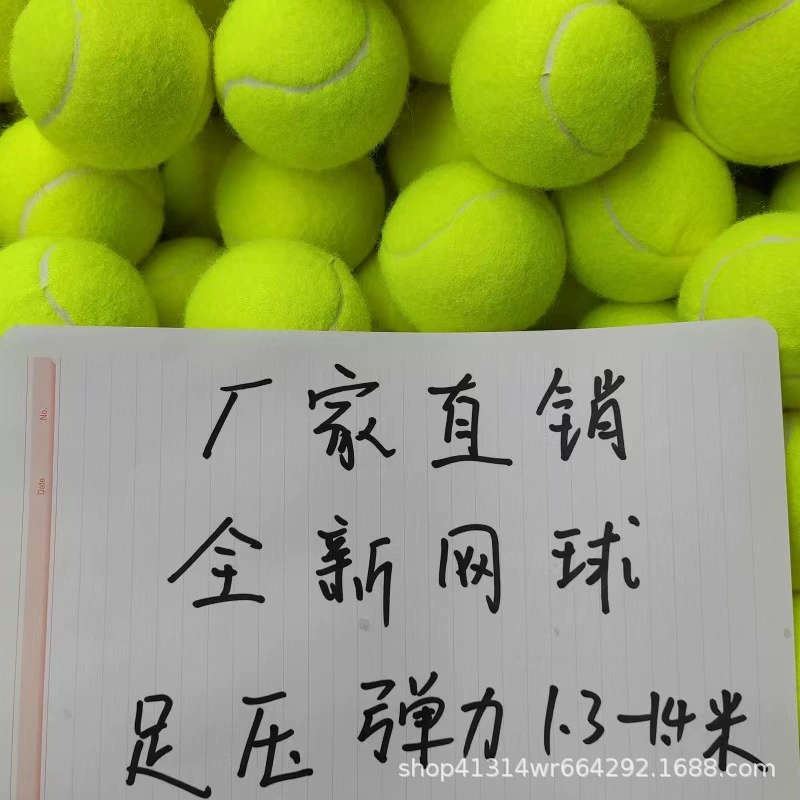 No.
Date
厂家直销
全新网球
足压 弹力 1.3-1.4米
shop41314wr664292.1688.com